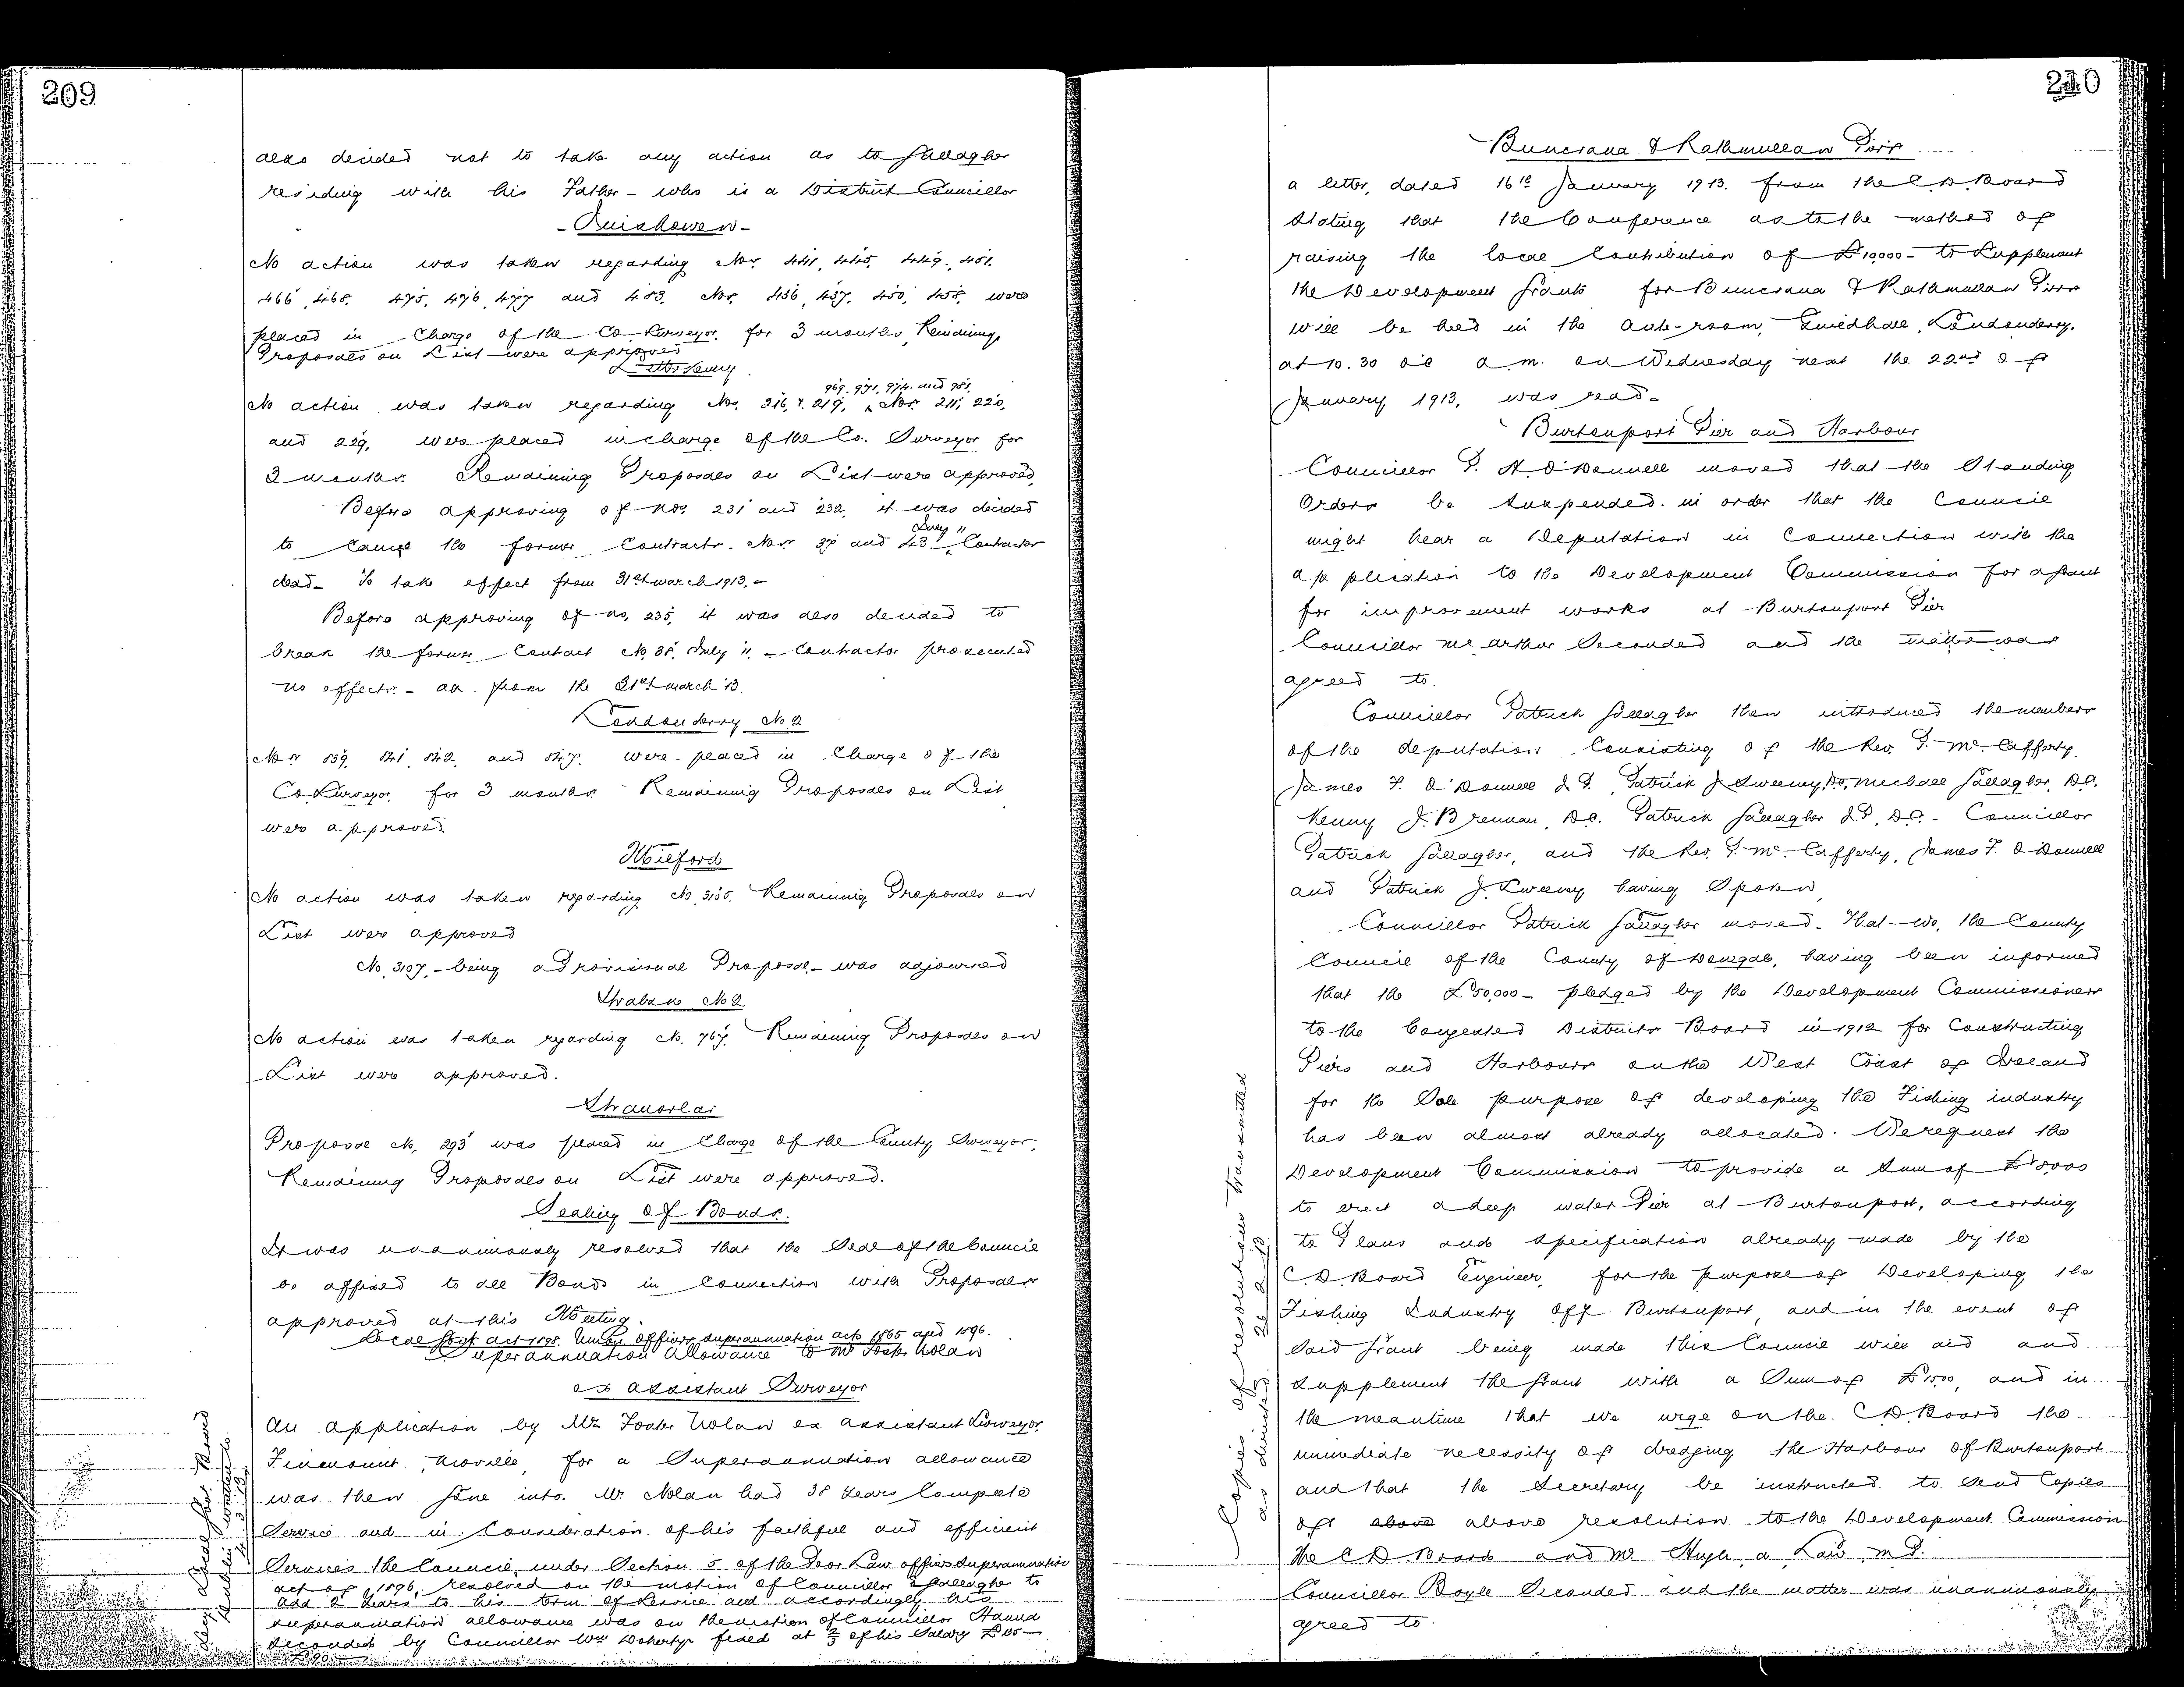 209
also decided not to take any action as to Gallagher
residing with his Father - who is a District Councillor
- Inishowen -
No action was taken regarding Nos. 441, 445, 449, 451.
466, 468, 475, 476, 477 and 483. Nos. 436, 437, 450, 458, were
placed in Charge of the Co. Surveyor, for 3 months, Remaining
Proposals on List were approved
Letterkenny
969. 971. 974. and 981.
No action was taken regarding Nos. 216, & 219, Nos. 211, 220,
and 229, were placed in charge of the Co. Surveyor for
3 months. Remaining Proposals on List were approved,
Before approving of nos. 231 and 232, it was decided
July 11
to the former Contracts. Nos. 37 and 43 Contractor
dead - To take effect from 31st March 1913. -
Before approving of no. 235, it was also decided to
break the former Contract No. 38, July 11. - Contractor prosecuted
no effects. - as from the 31st March 13.
Londonderry No. 2
Nos. 539, 541, 542, and 547, were placed in Charge of the
Co. Surveyor, for 3 months Remaining Proposals on List
were approved.
Milford
No action was taken regarding No. 3185. Remaining Proposals on
List were approved
No. 3107, - being a Provisional Proposal - was adjourned
Strabane No 2
No action was taken regarding No. 767. Remaining Proposals on
List were approved.
Stranorlar
Proposal No, 293 was placed in Charge of the County Surveyor,
Remaining Proposals on List were approved.
Sealing of Bonds.
It was unanimously resolved that the Seal of the Council
be affixed to all Bonds in Connection with Proposals
approved at this Meeting.
Local Govt. act 1898. Union officers superannuation acts 1865 and 1896.
Superannuation allowance to Mr Foster Nolan
ex assistant Surveyor
An application by Mr Foster Nolan ex assistant Surveyor,
Moville, for a Superannuation allowance
was then gone into. Mr. Nolan had 38 years Complete
Service and in Consideration of his faithful and efficient
Services the Council, under Section 5 of the Poor Law officers Superannuation
act of 1896, resolved on the motion of Councillor Gallagher to
add 2 years to his term of Service and accordingly his
superannuation allowance was on the motion of Councillor Hanna
Seconded by Councillor Wm Doherty, fixed at 2/3 of his Salary £135 -
£90
210
Buncrana & Rathmullan Piers
a letter, dated 16th January 1913. from the C.D. Board
stating that the Conference as to the method of
raising the local Contribution of £10,000 - to Supplement
the Development Grants for Buncrana & Rathmullan Piers
will be held in the ante-room, Guildhall, Londonderry.
at 10.30 a.m. on Wednesday next the 22nd of
January 1913, was read -
Burtonport Pier and Harbour
Councillor P. A. O'Donnell moved that the Standing
Orders be suspended in order that the Council
might hear a Deputation in Connection with the
application to the Development Commission for a Grant
for improvement works at Burtonport Pier
Councillor McArthur Seconded and the matter was
agreed to.
Councillor Patrick Gallagher then introduced the members
of the deputation Consisting of the Rev. P. McCafferty,
James F. O'Donnell J.P. Patrick J Sweeny, D.C. Michael Gallagher, D.C.
Kenny J. Brennan, D.C. Patrick Gallagher J.P, D.C. - Councillor
Patrick Gallagher, and the Rev. P. McCafferty, James F. O'Donnell
and Patrick J. Sweeny having Spoken,
Councillor Patrick Gallagher moved - That we, the County
Council of the County of Donegal, having been informed
that the £50,000 - pledged by the Development Commissioners
to the Congested Districts Board in 1912 for Constructing
Piers and Harbours on the West Coast of Ireland
for the Sole purpose of developing the Fishing industry
has been almost already allocated. We request the
Development Commission to provide a Sum of £8,000
to erect a deep water Pier at Burtonport, according
to Plans and specification already made by the
C.D. Board Engineer, for the purpose of Developing the
Fishing Industry off Burtonport, and in the event of
said Grant being made this Council will aid and
supplement the Grant with a Sum of £1500, and in
the meantime that we urge on the C.D. Board the
immediate necessity of dredging the Harbour of Burtonport
and that the Secretary be instructed to Send Copies
of above above resolution to the Development Commission
the C.D. Board and Mr Hugh a Law M.P.
Councillor Boyle Seconded and the matter was unanimously
agreed to.
Copies of resolutions transmitted
as directed 26 2 13